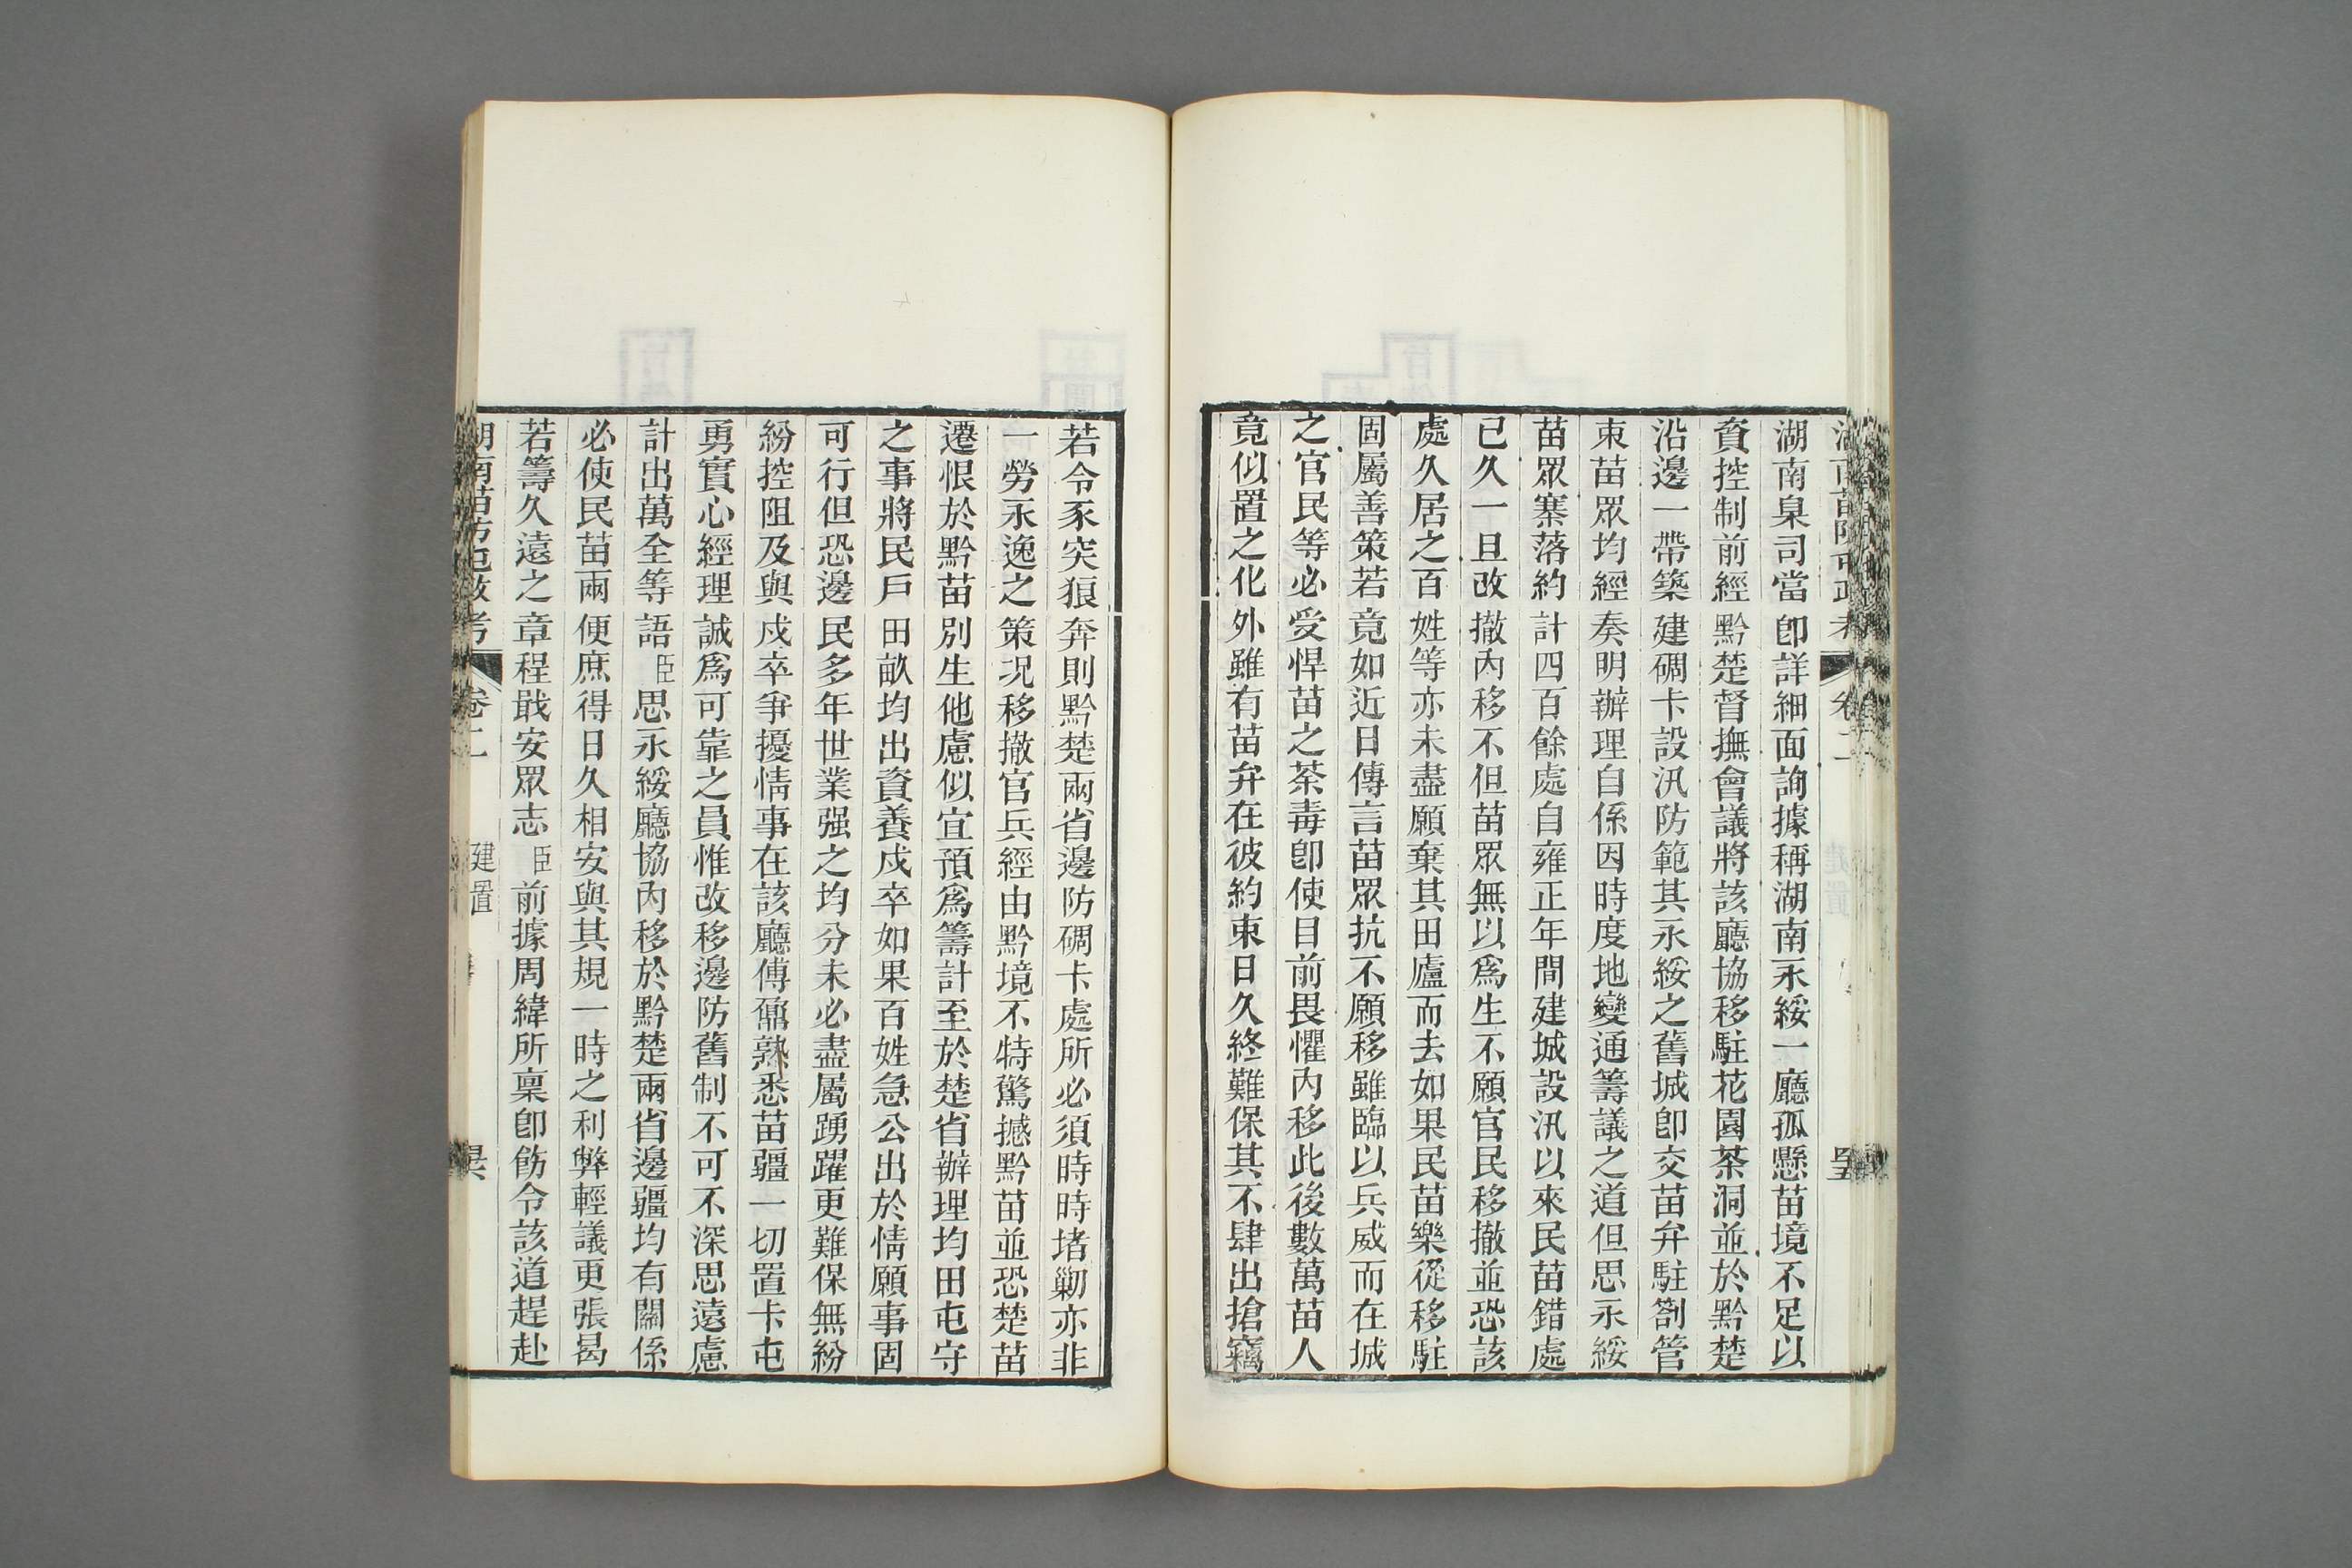 湖南臬司當卽詳細面詢據稱湖南永綏一廳孤懸苗境不足以
資控制前經黔楚督撫會議將該廳協移駐花園茶洞並於黔楚
沿邊一帶築建碉卡設汛防範其永綏之舊城卽交苗弁駐劄管
束苗眾均經奏明辦理自係因時度地變通籌議之道但思永綏
苗眾寨落約計四百餘處自雍正年間建城設汛以來民苗錯處
已久一旦改撤內移不但苗眾無以爲生不願官民移撤並恐該
處久居之百姓等亦未盡願棄其田廬而去如果民苗樂從移駐
固屬善策若竟如近日傳言苗眾抗不願移雖臨以兵威而在城
之官民等必受悍苗之荼毒卽使目前畏懼內移此後數萬苗人
竟似置之化外雖有苗弁在彼約束日久終難保其不肆出搶竊
若令豕突狼奔則黔楚兩省邊防碉卡處所必須時時堵勦亦非
一勞永逸之策况移撤官兵經由黔境不特驚撼黔苗並恐楚苗
遷恨於黔苗別生他慮似宜預爲籌計至於楚省辦理均田屯守
之事將民戶田畝均出資養戍卒如果百姓急公出於情願事固
可行但恐邊民多年世業强之均分未必盡屬踴躍更難保無紛
紛控阻及與戍卒爭擾情事在該廳傅鼐熟悉苗疆一切置卡屯
勇實心經理誠爲可靠之員惟改移邊防舊制不可不深思遠慮
計出萬全等語臣思永綏廳協內移於黔楚兩省邊疆均有關係
必使民苗兩便庶得日久相安與其規一時之利弊輕議更張曷
若籌久遠之章程戢安眾志臣前據周緯所稟卽飭令該道趕赴
湖南苗防屯政考 卷二 建置